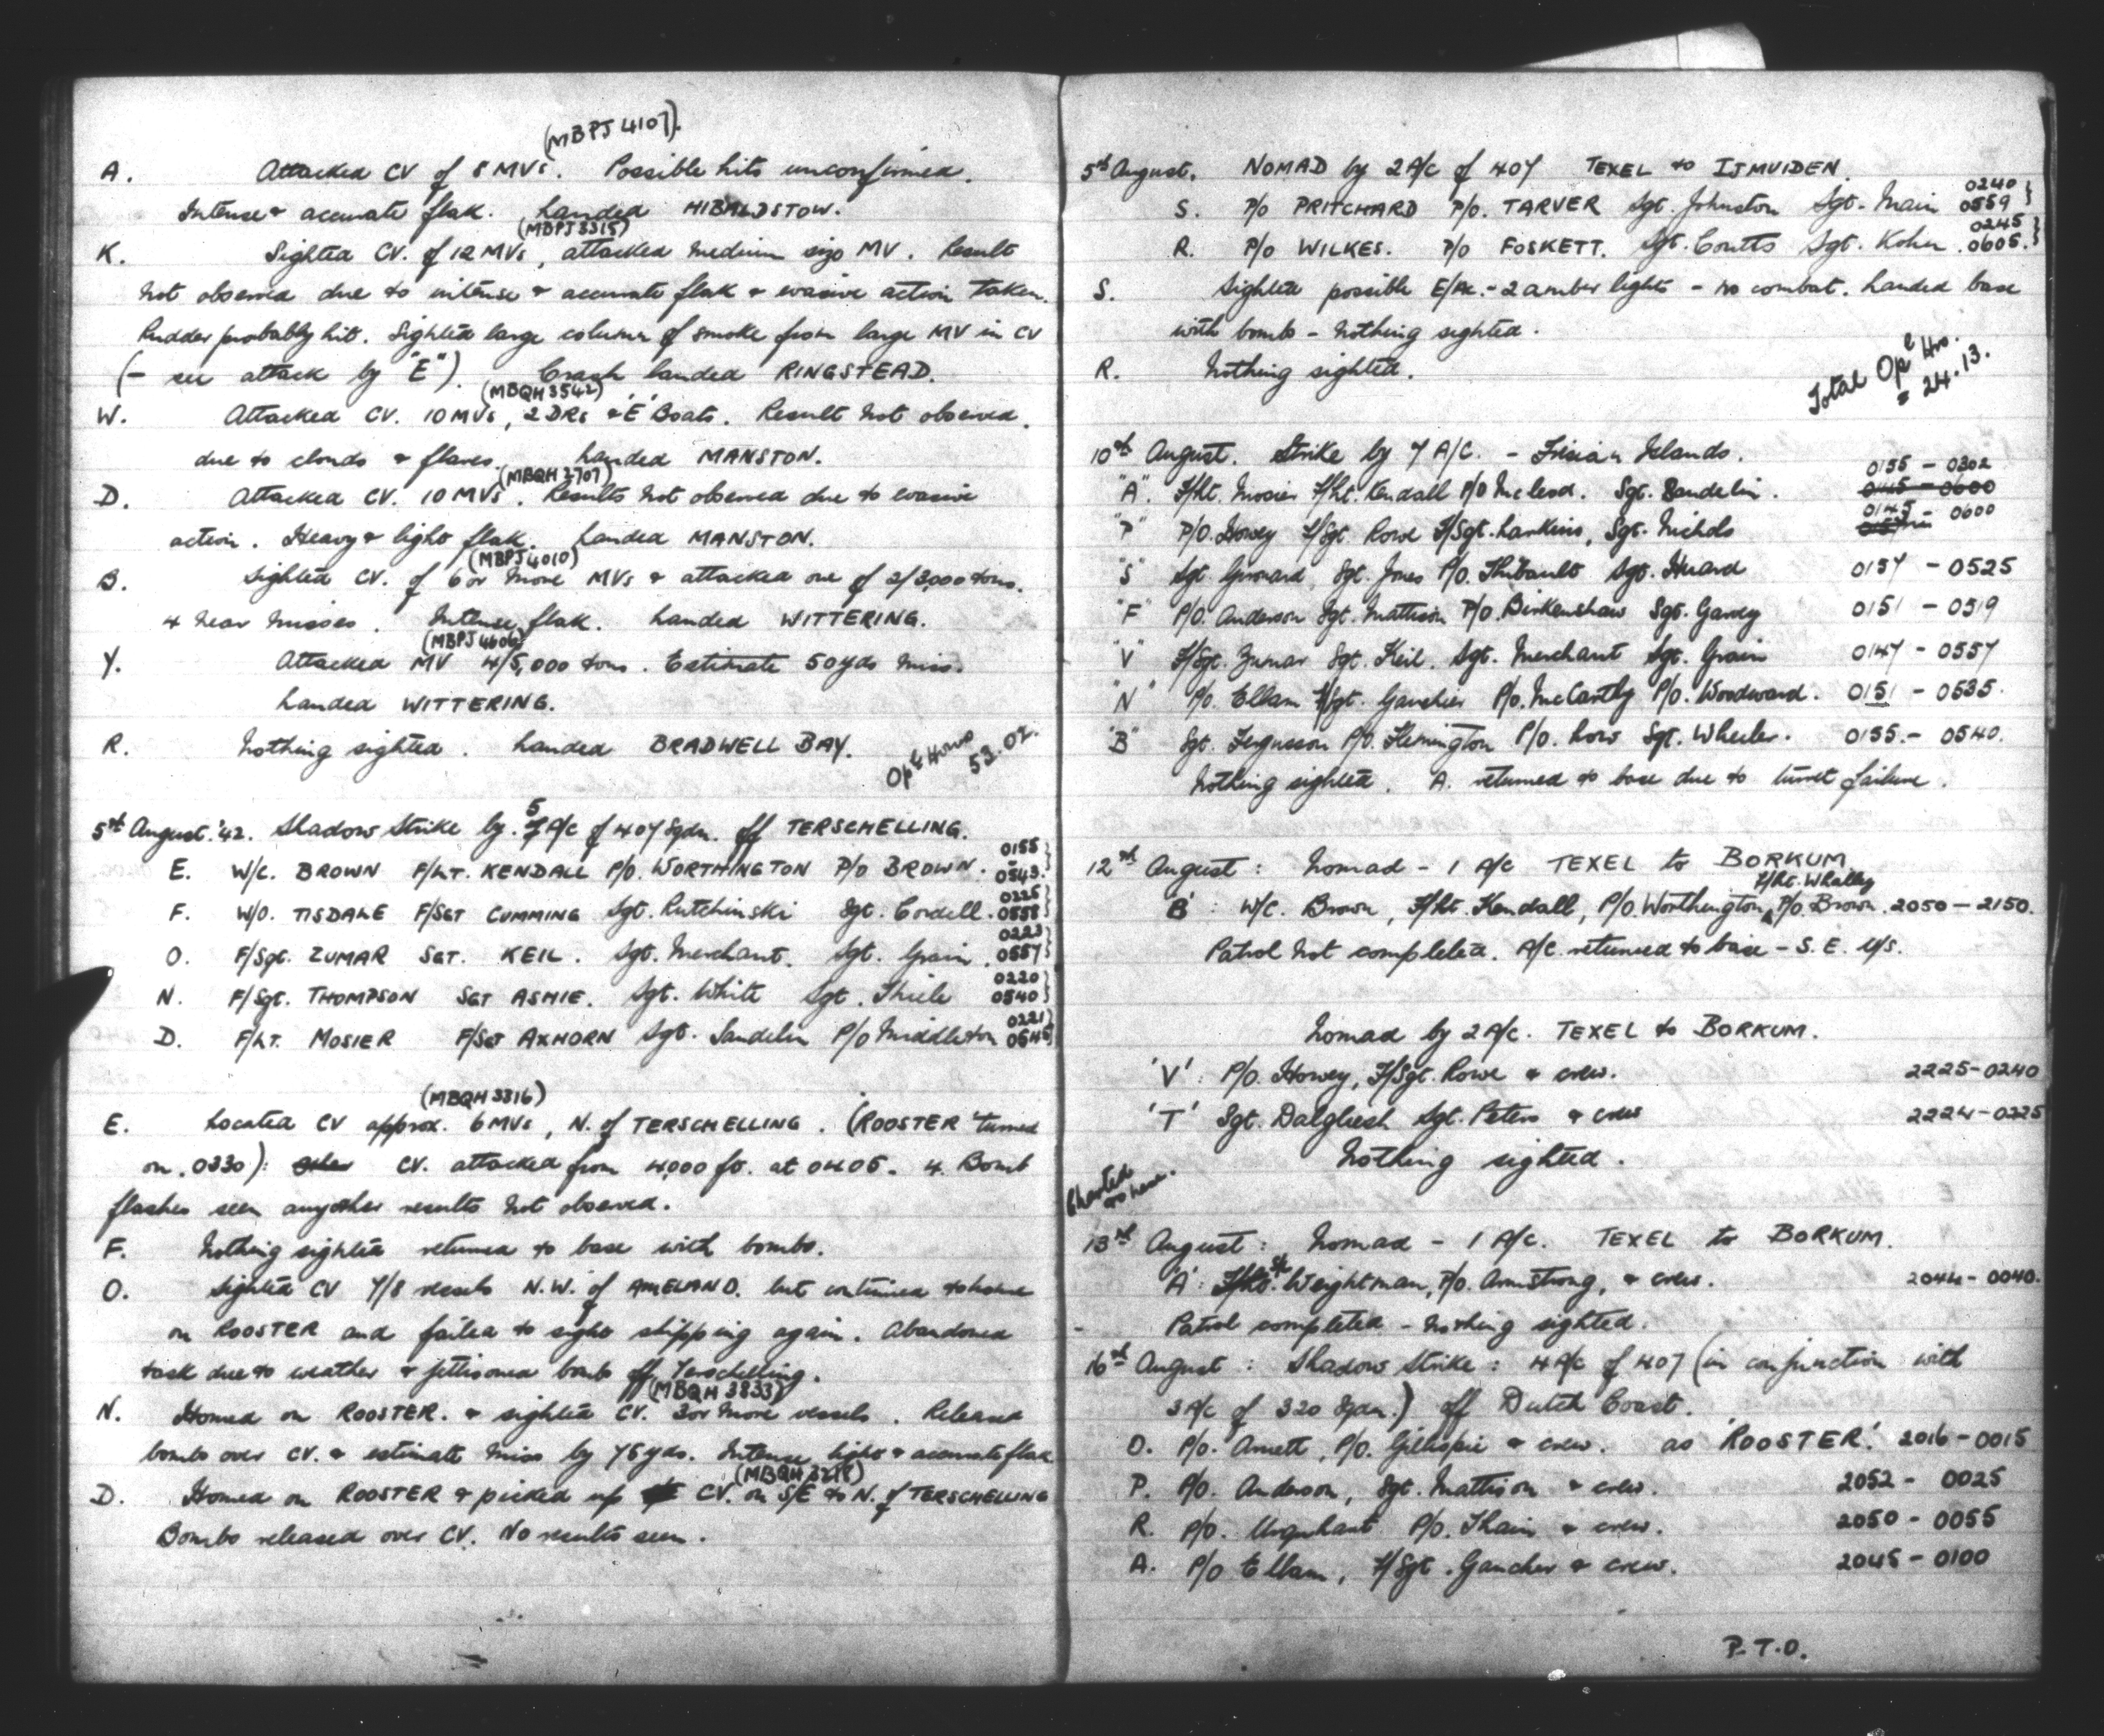 (MBPJ 4107).
A. Attacked CV of 8 MVs. Possible hits unconfirmed.
Intense & accurate flak. Landed HIBALDSTOW.
(MBPJ 3315)
K. Sighted CV. of 12 MVs, attacked medium size MV. Result
not observed due to intense & accurate flak & evasive action taken.
Rudder probably hit. Sighted large column of smoke from large MV in CV
(- see attack by "E"). Crash landed RINGSTEAD.
(MBQH 3542)
W. Attacked CV. 10 MVs, 2 DRs & 'E' Boats. Result not observed.
due to clouds & flares. Landed MANSTON.
(MBQH 2707)
D. Attacked CV. 10 MVs. Results not observed due to evasive
action. Heavy & light flak. Landed MANSTON.
(MBPJ 4010)
B. Sighted CV. of 6 or more MVs & attacked one of 2/3,000 tons.
4 near misses. Intense flak. Landed WITTERING.
(MBPJ 4606)
Y. Attacked MV 4/5,000 tons. Estimate 50 yds miss.
Landed WITTERING.
R. Nothing sighted. Landed BRADWELL BAY.
Opl Hours 53.02.
5th August '42. Shadow Strike by 5 A/C of 407 Sqdn. off TERSCHELLING.
E. W/C. BROWN F/LT. KENDALL P/O. WORTHINGTON P/O BROWN. 0155 - 0543.
F. W/O. TISDALE F/SGT CUMMING Sgt. Rutchinski Sgt. Cordell. 0225 0558
O. F/Sgt. ZUMAR SGT. KEIL. Sgt. Merchant. Sgt. Grain. 0223 0557
N. F/Sgt. THOMPSON SGT ASHIE. Sgt. White Sgt. Thiele 0220 0540
D. F/LT. MOSIER F/SGT AXHORN Sgt. Sandelin P/O Middleton 0221 0545
(MBQH 3316)
E. Located CV approx. 6 MVs, N. of TERSCHELLING. (ROOSTER turned
on. 0330): CV. attacked from 4,000 ft. at 0405. 4. Bomb
flashes seen any other results not observed.
F. Nothing sighted returned to base with bombs.
O. Sighted CV 7/8 vessels N.W. of AMELAND. but continued to home
on ROOSTER and failed to sight shipping again. Abandoned
task due to weather & jettisoned bombs off Terschelling.
(MBQH 3833)
N. Homed on ROOSTER. & sighted CV. 3 or more vessels. Released
bombs over CV. & estimate miss by 75 yds. Intense light & accurate flak
(MBQH 3218)
D. Homed on ROOSTER & picked up CV. on S/E to N. of TERSCHELLING
Bombs released over CV. No results seen.
5th August. NOMAD by 2 A/C of 407 TEXEL to IJMUIDEN.
S. P/O PRITCHARD P/O. TARVER Sgt. Johnston Sgt. Main 0240 0559
R. P/O WILKES. P/O FOSKETT. Sgt. Coutts Sgt. Koher. 0245 0605.
S. Sighted possible E/Ac. - 2 amber lights - no combat. Landed base
with bombs - nothing sighted.
R. Nothing sighted.
Total Opl Hrs. = 24.13.
10th August. Strike by 7 A/C. - Frisian Islands.
"A". F/Lt. Mosier F/Lt. Kendall P/O McLeod. Sgt. Sandelin. 0155 - 0302
0145 - 0600
"P" P/O. Howey F/Sgt Rowe F/Sgt. Larkins, Sgt. Nichols 0145 - 0600
"S" Sgt. Girouard, Sgt. Jones P/O. Thibault Sgt. Huard 0157 - 0525
"F" P/O. Anderson Sgt. Mattison P/O. Birkenshaw Sgt. Garey 0151 - 0519
"V" F/Sgt. Zumar Sgt. Keil. Sgt. Merchant Sgt. Grain 0147 - 0557
"N" P/O. Ellam F/Sgt. Gaucher P/O. McCarthy P/O. Woodward. 0151 - 0535.
"B" Sgt. Fergusson P/O. Flemington P/O. Low Sgt. Wheeler. 0155. - 0540.
Nothing sighted. A. returned to base due to turret failure.
12th August: Nomad - 1 A/C TEXEL to BORKUM.
F/Lt. Whalley
'B': W/C. Brown, F/Lt. Kendall, P/O. Worthington, P/O. Brown. 2050 - 2150.
Patrol not completed. A/C. returned to base - S.E. U/S.
Nomad by 2 A/C. TEXEL to BORKUM.
'V': P/O. Howey, F/Sgt. Rowe & crew. 2225-0240
'T' Sgt. Dalgliesh Sgt. Peters & crew 2224-0225
Nothing sighted.
Charted
to here.
13th August: Nomad - 1 A/C. TEXEL to BORKUM.
'A': Weightman, P/O. Armstrong, & crew. 2044 - 0040.
Patrol completed - nothing sighted.
16th August: Shadow Strike: 4 A/C of 407 (in conjunction with
3 A/C of 320 Sqdn.) off Dutch Coast.
O. P/O. Arnett, P/O. Gillespie & crew. as 'ROOSTER'. 2016 - 0015
P. P/O. Anderson, Sgt. Mattison & crew. 2052 - 0025
R. P/O. Urquhart P/O. Thain & crew. 2050 - 0055
A. P/O Ellam, F/Sgt. Gaucher & crew. 2045 - 0100
P.T.O.